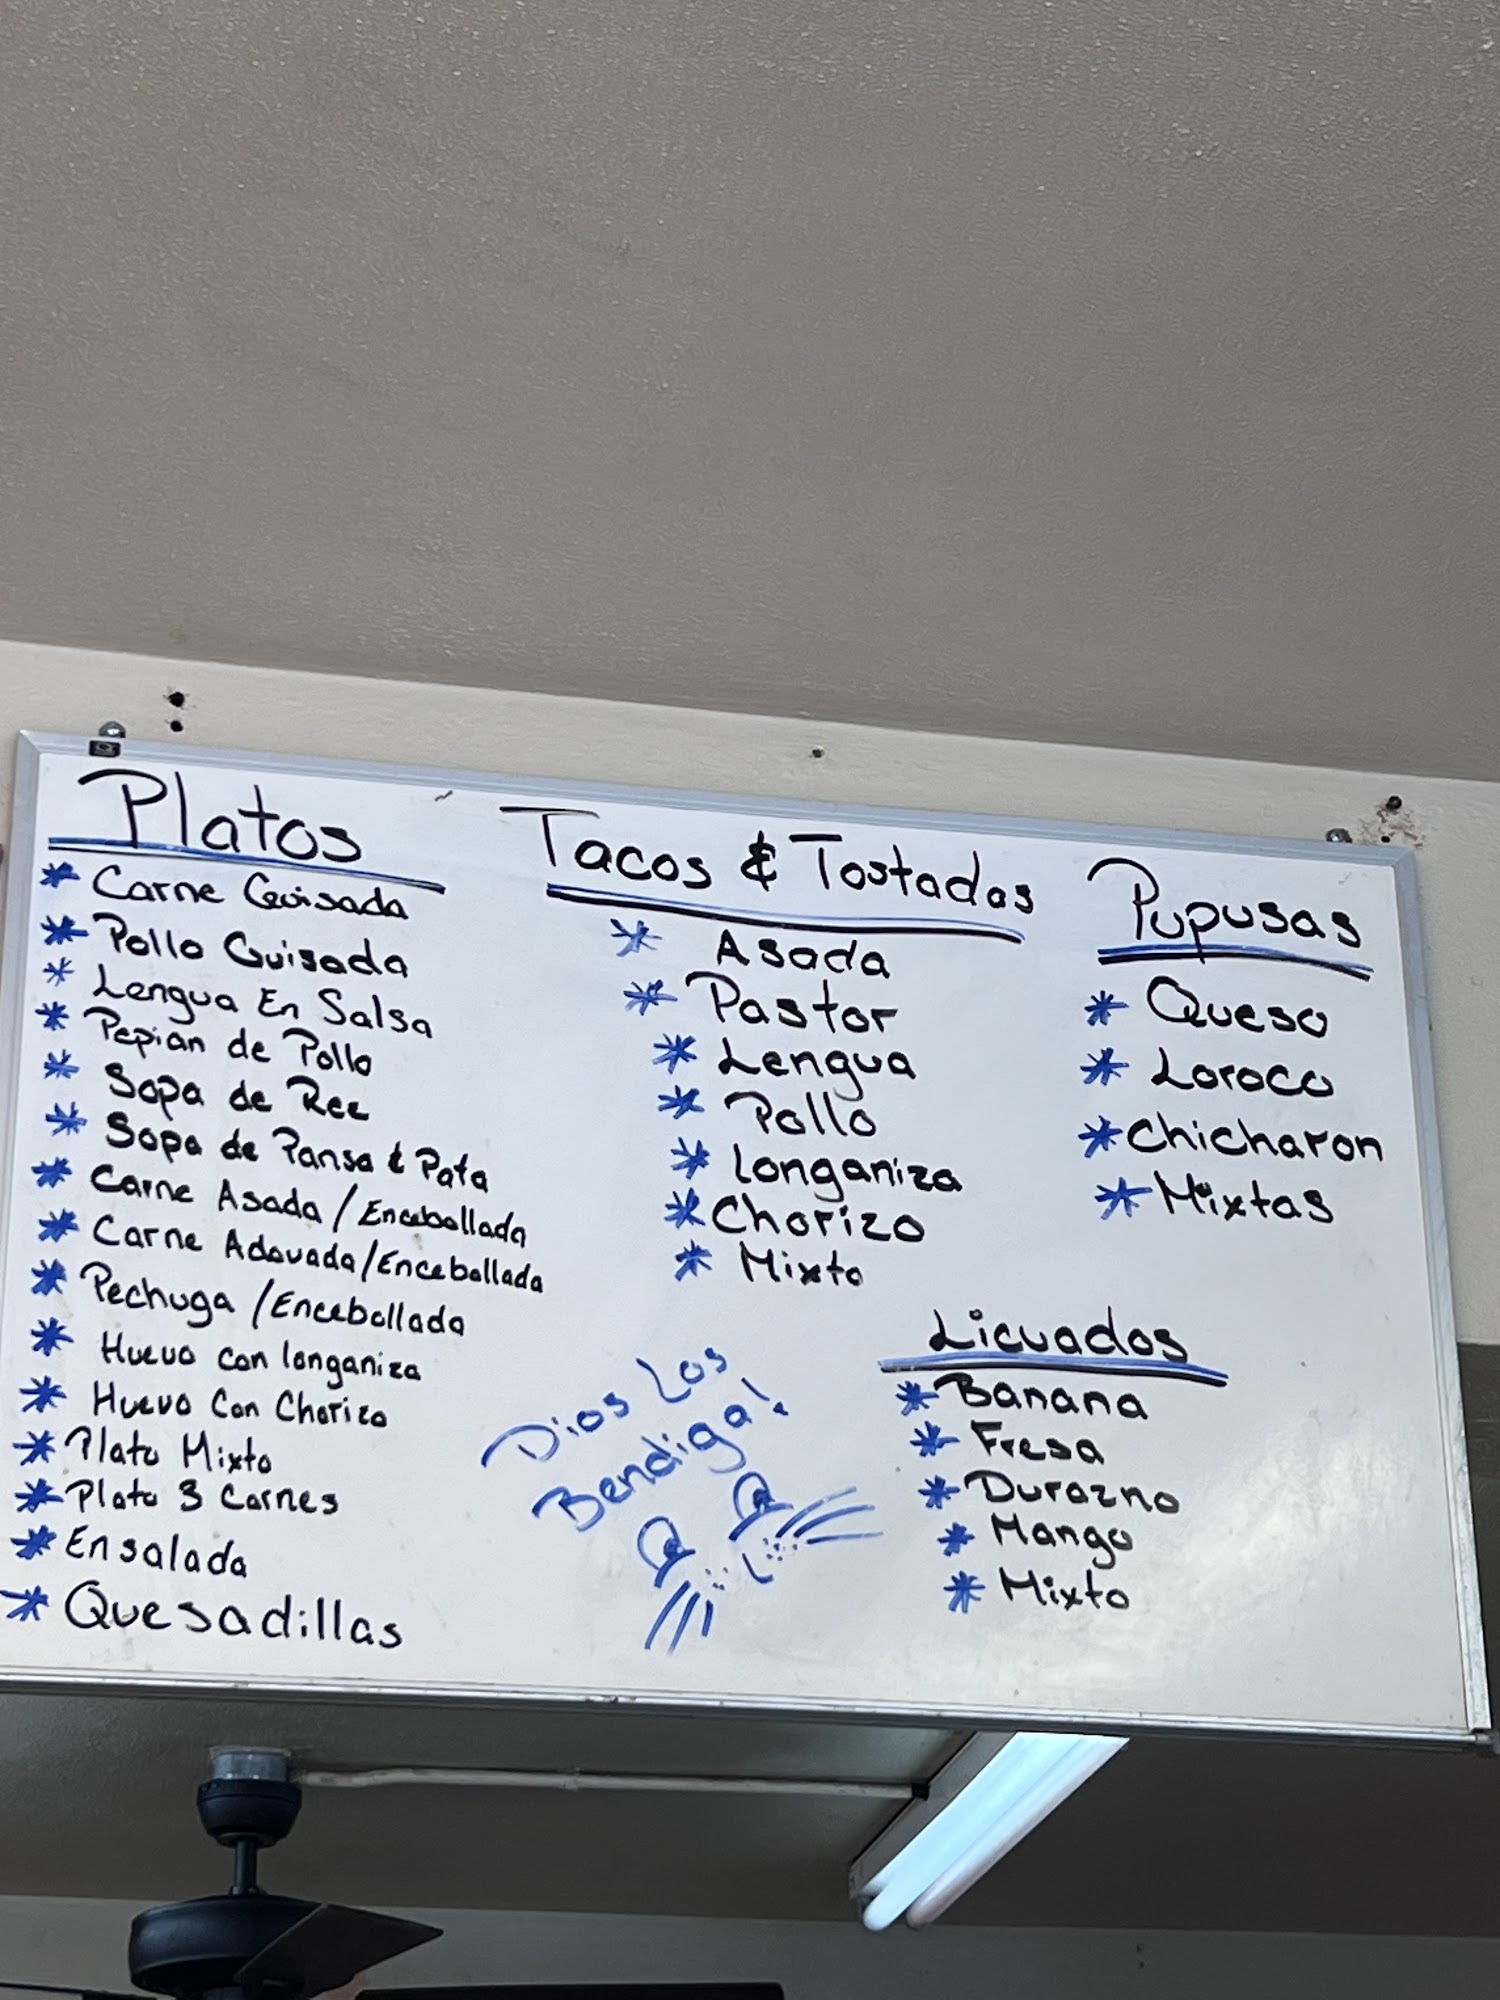 Platos
* Carne Guisada
* Pollo Guisada
* Lengua En Salsa
* Pepian de Pollo
* Sopa de Rez
* Sopa de Pansa & Pata
* Carne Asada / Encebollada
* Carne Adovada/Encebollada
* Pechuga /Encebollada
* Huevo con longaniza
* Huevo Con Chorizo
* Plato Mixto
* Plato 3 Carnes
* Ensalada
* Quesadillas
Tacos & Tostadas
* Asada
* Pastor
* Lengua
* Pollo
* Longaniza
* Chorizo
* Mixto
Dios Los
Bendiga!
Pupusas
* Queso
* Loroco
* Chicharon
* Mixtas
Licuados
* Banana
* Fresa
* Durazno
* Mango
* Mixto